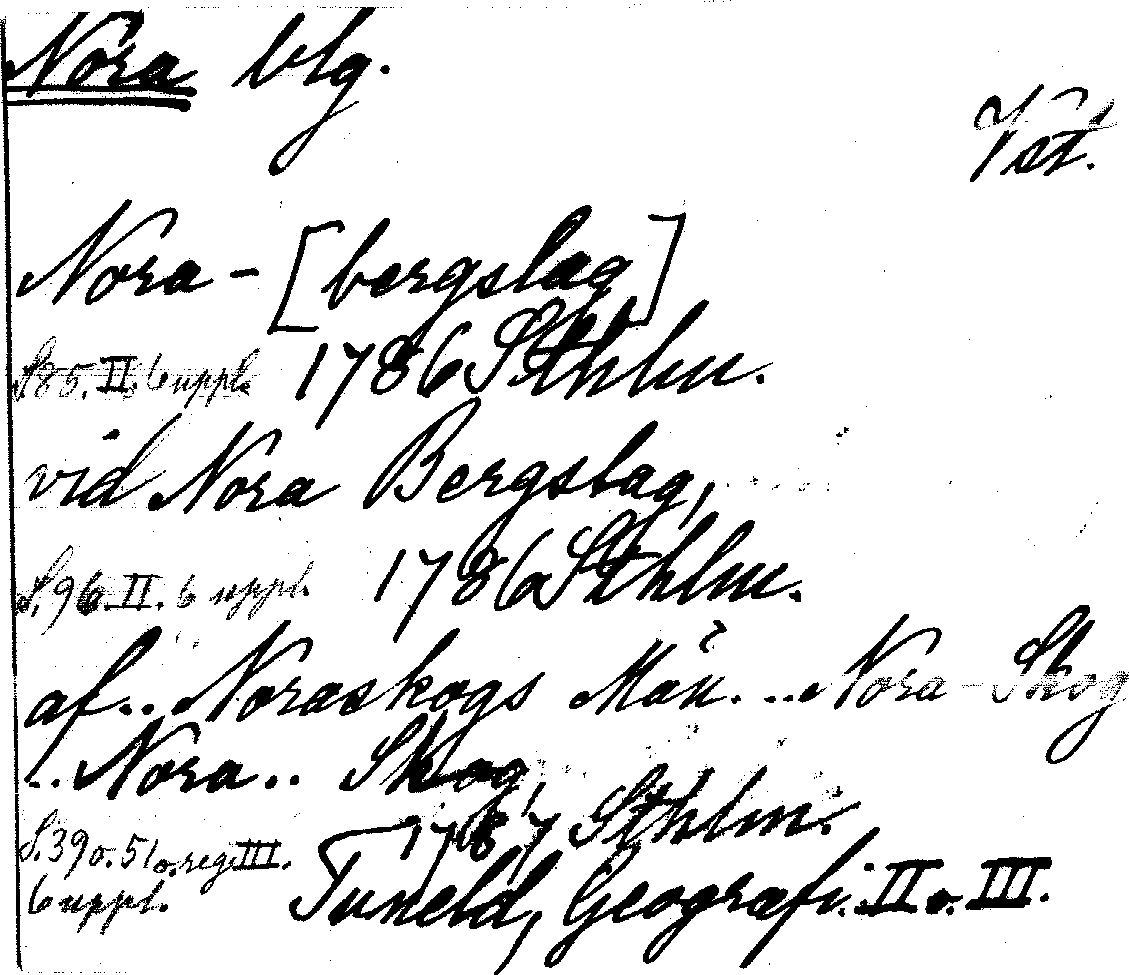 Nora blg.
Vst.
Nora - [bergslag]
S.85. II. 6 uppl. 1786 Sthlm.
vid Nora Bergslag,
S.96. II. 6 uppl. 1786 Sthlm.
af.. Noraskogs Män. .. Nora-Skog
.. Nora.. Skog,
1787 Sthlm.
S.39 o. 51 o. reg. III.
6 uppl. Tuneld, Geografi. II o. III.